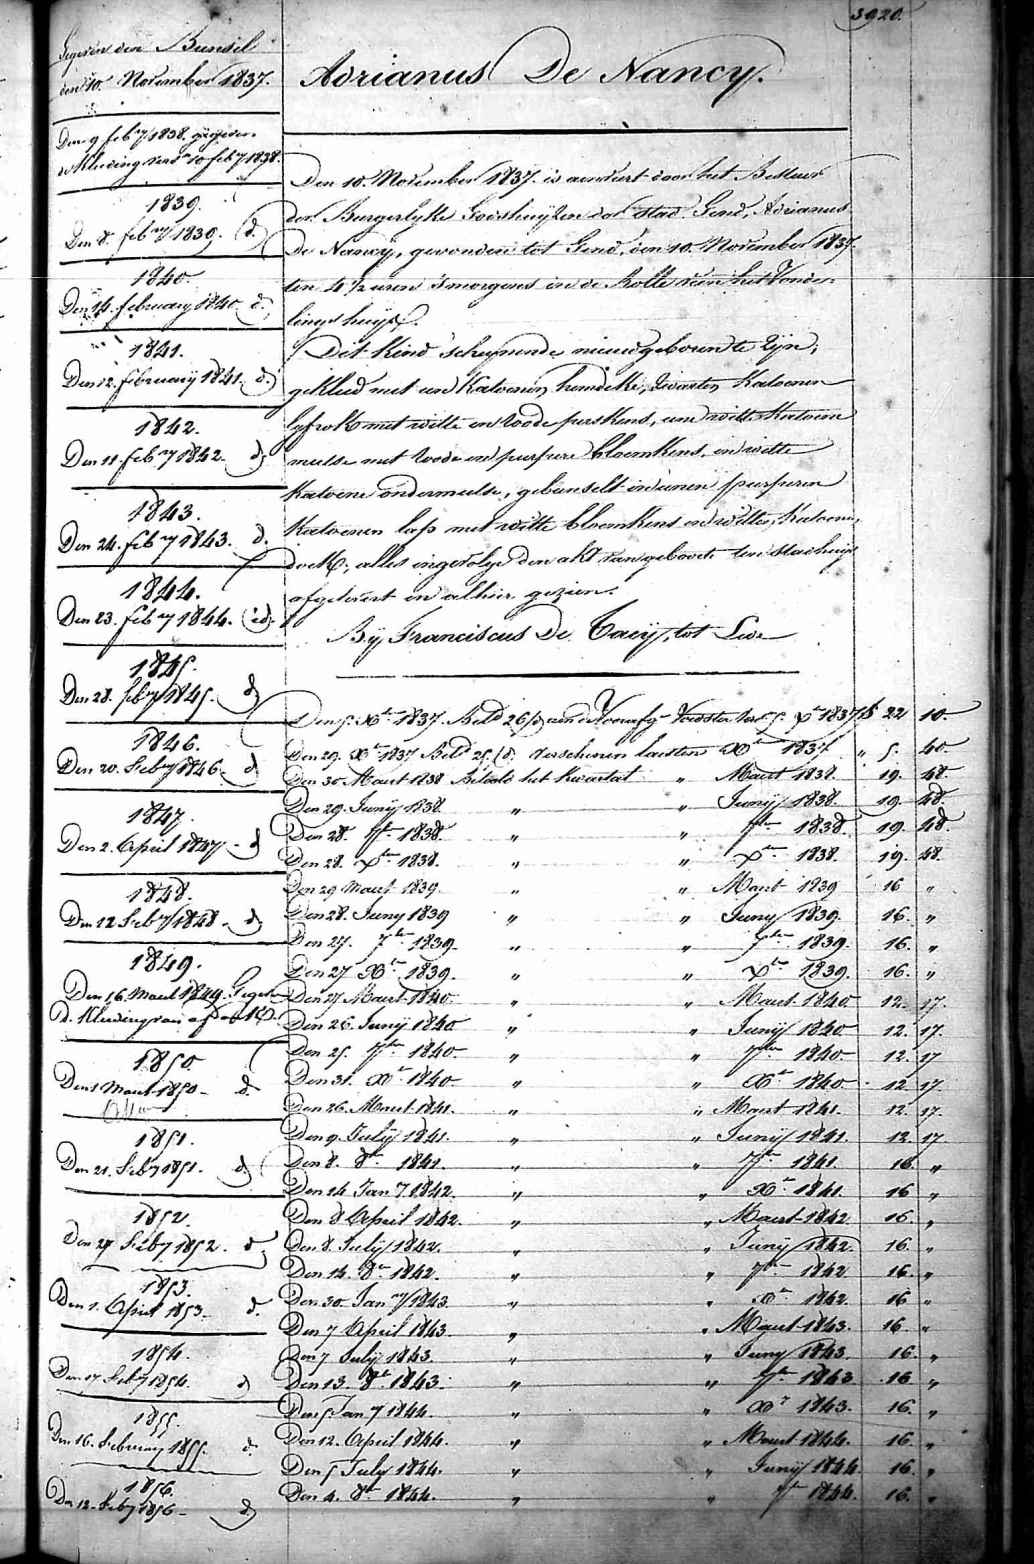 3920.
Gegeven den Bunsel
den 10. November 1837.
Den 9 feb^ry 1838. gegeven
de Kleeding van 10 feb^ry 1838.
1839.
Den 8. feb^ry 1839. d.
1840.
Den 14. february 1840. d.
1841.
Den 12. february 1841. d.
1842.
Den 11. feb^ry 1842. d.
1843.
Den 24. feb^ry 1843. d.
1844.
Den 23. feb^ry 1844. d.
1845.
Den 28. feb^ry 1845. d
1846.
Den 20. Feb^ry 1846. d
1847.
Den 2. April 1847. d
1848.
Den 12 Feb^ry 1848. d
1849.
Den 16. Maert 1849. Gegeven
d. Kleeding van
1850.
Den 1 Maert 1850. d.
1851.
Den 21. Feb^ry 1851. d
1852.
Den 27 Feb^ry 1852. d
1853.
Den 1. April 1853. d.
1854.
Den 17 Feb^ry 1854. d
1855.
Den 16. February 1855. d.
1856.
Den 12. Feb^ry 1856 d
Adrianus De Nancy.
Den 10. November 1837. is aenveert door het Bestuer
der Burgerlyke Godshuijzen der stad Gend, Adrianus
De Nancy, gevonden tot Gend, den 10. November 1837.
ten 4 ½ uren 's morgens in de Rolle van het Vonde-
lingshuijs.
Dit Kind schynende nieuwgeboren te zyn,
gekleed met een Katoenen hemdeke, zwarten Katoenen
lyfrok met witte en roode perskens, een witte Katoene
mutse met roode en purpere bloemkens, en witte
Katoene ondermutse, gebunselt in eenen purperen
Katoenen lap met witte bloemkens en witten Katoenen
doek, alles ingevolge den akt van geboorte ten stadhuijs
afgelevert en alhier gezien.
Bij Franciscus De Taeij, tot Lede
Den 5. X^ber 1837. Bet^d 26/d aen de Voorzorg Voedster tot 5. X^ber 1837 f 22 10.
Den 29. X^ber 1837 Bet^d 25/d. verschenen laesten X^ber 1837 " 5. 40.
Den 30 Maert 1838 Betaelt het Kwartael " Maert 1838. 19. 48.
Den 29. Junij 1838. " " Junij 1838. 19. 48.
Den 28. 7^ber 1838. " " 7^ber 1838. 19. 48.
Den 28. X^ber 1838. " " X^ber 1838. 19. 48.
Den 29 Maert 1839. " " Maert 1839 16 "
Den 28. Juny 1839 " " Juny 1839. 16. "
Den 27. 7^ber 1839. " " 7^ber 1839. 16. "
Den 27 X^ber 1839. " " X^ber 1839. 16. "
Den 27 Maert 1840. " " Maert 1840 12. 17.
Den 26. Junij 1840 " " Junij 1840. 12. 17.
Den 25. 7^ber 1840. " " 7^ber 1840. 12. 17
Den 31. X^ber 1840. " " X^ber 1840. 12 17.
Den 26. Maert 1841. " " Maert 1841. 12. 17.
Den 9. July 1841. " " Junij 1841. 12. 17
Den 8. 8^ber 1841. " " 7^ber 1841. 16. "
Den 14 Jan^ry 1842. " " X^ber 1841. 16 "
Den 8 April 1842. " " Maert 1842 16. "
Den 8. Julij 1842. " " Junij 1842. 16. "
Den 14. 8^ber 1842. " " 7^ber 1842 16. "
Den 30. Jan^ry 1843. " " X^ber 1842. 16 "
Den 7 April 1843. " " Maert 1843. 16 "
Den 7 July 1843. " " Juny 1843. 16. "
Den 13. 8^ber 1843. " " 7^ber 1843 16 "
Den 5 Jan^ry 1844. " " X^ber 1843. 16. "
Den 12. April 1844. " " Maert 1844. 16. "
Den 5 July 1844. " " Junij 1844. 16. "
Den 4. 8^ber 1844. " " 7^ber 1844. 16. "